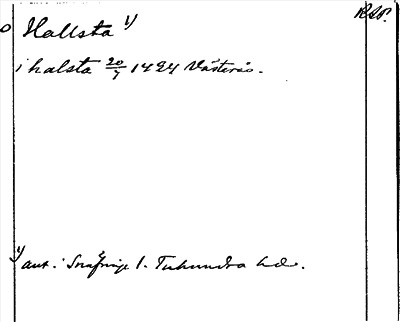 RAP.
o Hallsta 1)
i halsta 20/7 1494 Västerås.
1) ant. i Snäfringe l. Tuhundra hd.